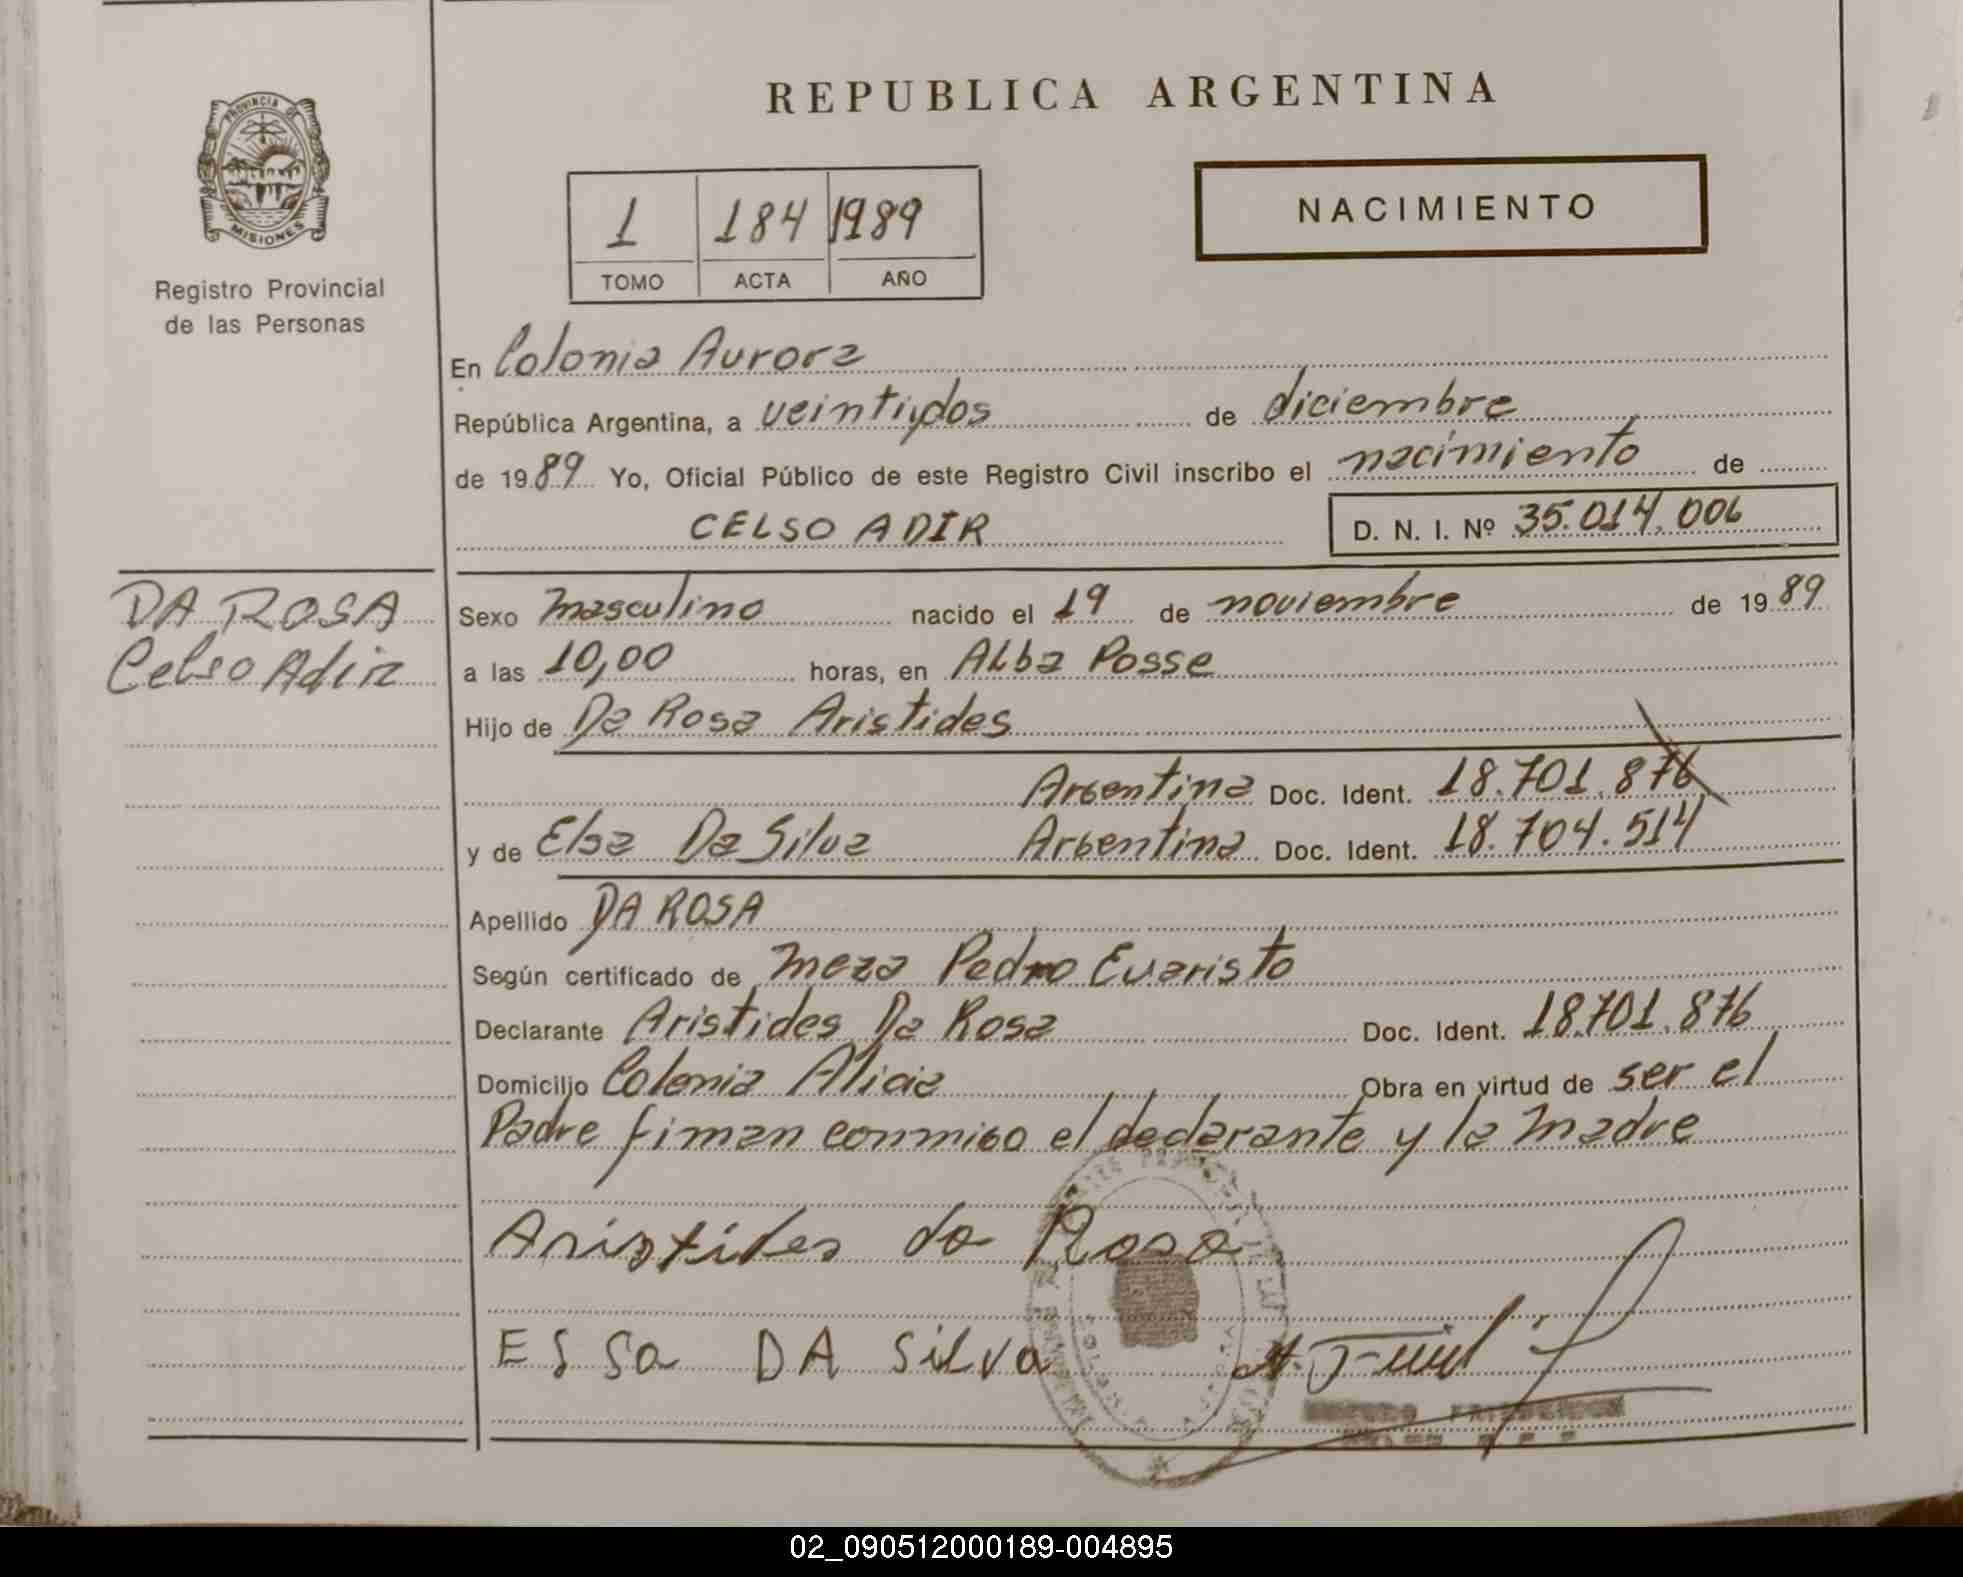 REPUBLICA ARGENTINA
PROVINCIA DE
MISIONES
Registro Provincial
de las Personas
1 184 1989
TOMO ACTA AÑO
NACIMIENTO
En Colonia Aurora
República Argentina, a veintidos de diciembre
de 1989 Yo, Oficial Público de este Registro Civil inscribo el nacimiento de
CELSO ADIR D. N. I. Nº 35.014.006
DA ROSA
Celso Adir
Sexo masculino nacido el 19 de noviembre de 1989
a las 10,00 horas, en Alba Posse
Hijo de Da Rosa Aristides
Argentina Doc. Ident. 18.701.876
y de Elsa Da Silva Argentina Doc. Ident. 18.704.514
Apellido DA ROSA
Según certificado de Meza Pedro Evaristo
Declarante Aristides Da Rosa Doc. Ident. 18.701.876
Domicilio Colonia Alicia Obra en virtud de ser el
Padre firman conmigo el declarante y la Madre
Aristides da Rosa
ELSa DA SiLVa
02_090512000189-004895